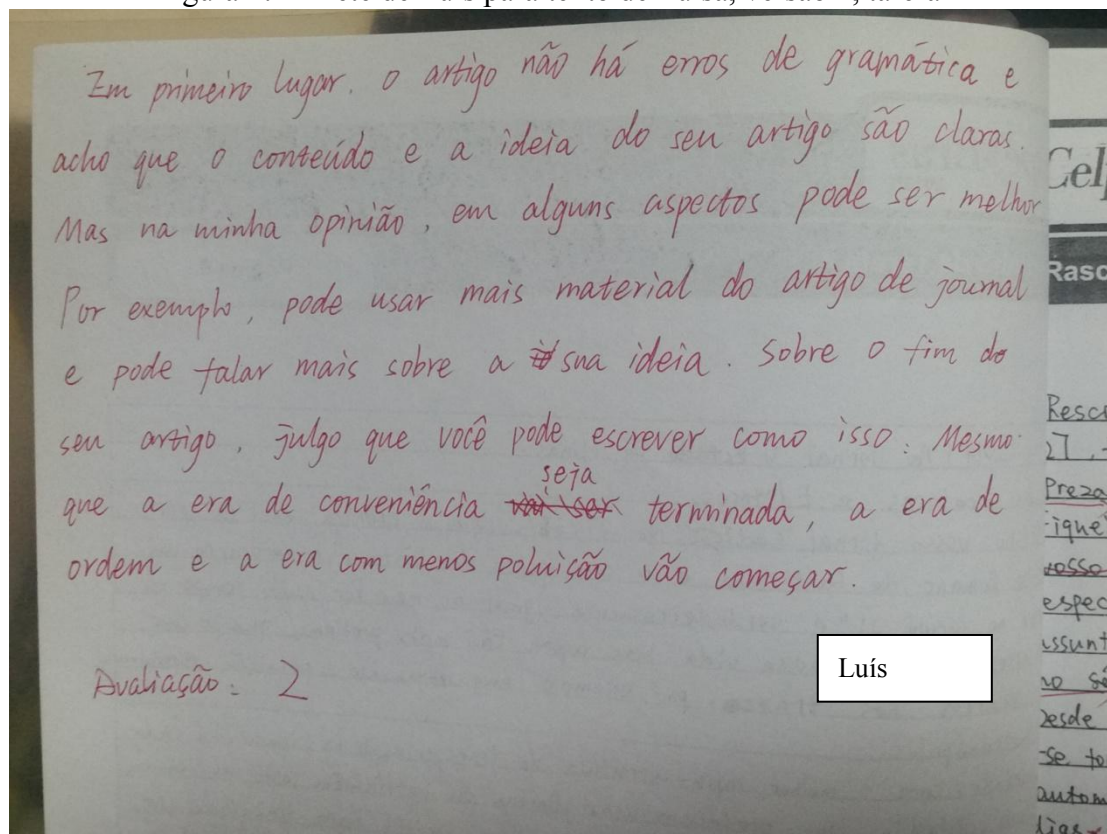 Em primeiro lugar. o artigo não há erros de gramática e
acho que o conteúdo e a ideia do seu artigo são claras.
Mas na minha opinião, em alguns aspectos pode ser melhor
Por exemplo, pode usar mais material do artigo de journal
e pode falar mais sobre a sua ideia. Sobre o fim do
seu artigo, julgo que você pode escrever como isso: Mesmo
seja
que a era de conveniência vai ser terminada, a era de
ordem e a era com menos poluição vão começar.
Luís
Avaliação: 2
Cel
Rasc
Resc
Preza
fique
vosso
espec
assunt
desde
-se to
autom